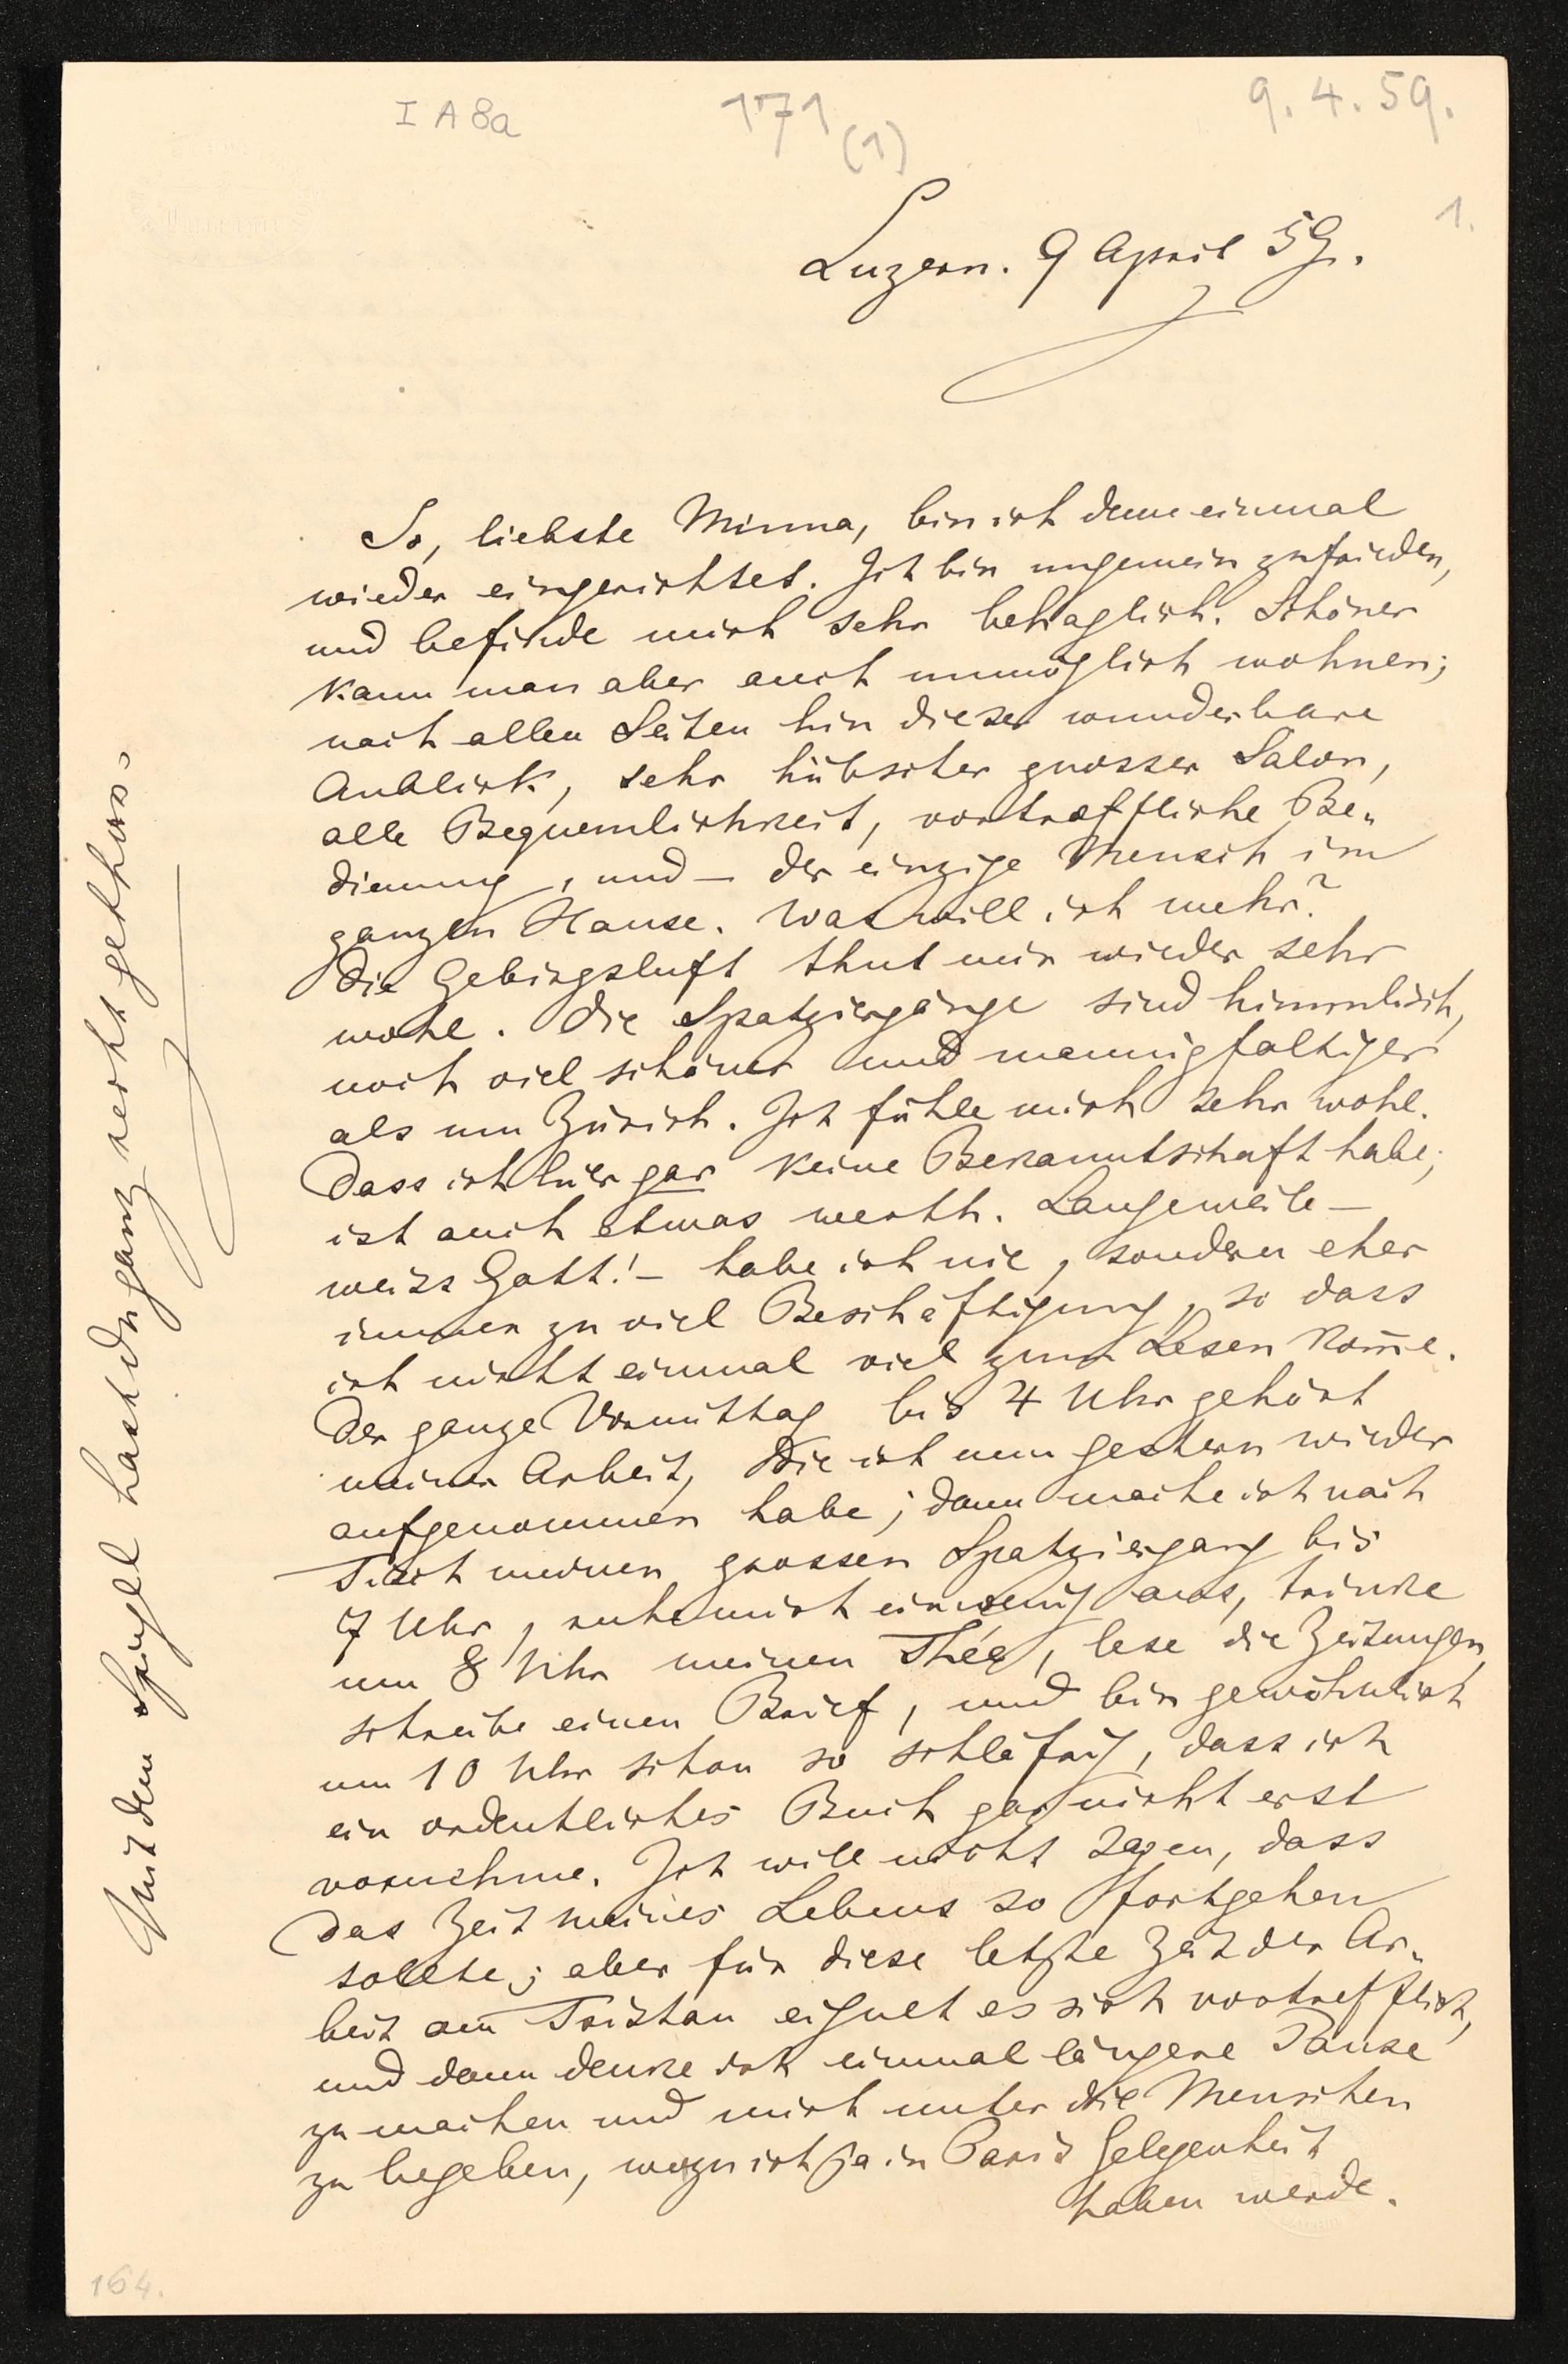 I A 8a
171
(1)
9. 4. 59.
1.
Luzern. 9 April 59.
So, liebste Minna, bin ich denn einmal
wieder eingerichtet. Ich bin ungemein zufrieden,
und befinde mich sehr behaglich. Schöner
kann man aber auch unmöglich wohnen;
nach allen Seiten hin dieser wunderbare
Anblick, sehr hübscher grosser Salon,
alle Bequemlichkeit, vortreffliche Be-
dienung, und — der einzige Mensch im
ganzen Hause. Was will ich mehr?
Die Gebirgsluft thut mir wieder sehr
wohl. Die Spatziergänge sind himmlisch,
noch viel schöner und mannigfaltiger
als um Zürich. Ich fühle mich sehr wohl.
Dass ich hier gar keine Bekanntschaft habe,
ist auch etwas werth. Langeweile —
weiss Gott! — habe ich nie, sondern eher
immer zu viel Beschäftigung, so dass
ich nicht einmal viel zum Lesen kom̅e.
Der ganze Vormittag bis 4 Uhr gehört
meiner Arbeit, die ich nun gestern wieder
aufgenommen habe; dann mache ich nach
Tisch meinen grossen Spatziergang bis
7 Uhr, ruhe mich ein wenig aus, trinke
um 8 Uhr meinen Thée, lese die Zeitungen,
schreibe einen Brief, und bin gewöhnlich
um 10 Uhr schon so schläfrig, dass ich
ein ordentliches Buch gar nicht erst
vornehme. Ich will nicht sagen, dass
das Zeit meines Lebens so fortgehen
sollte; aber für diese letzte Zeit der Ar-
beit am Tristan eignet es sich vortrefflich,
und dann denke ich einmal längere Pause
zu machen und mich unter die Menschen
zu begeben, wozu ich ja in Paris Gelegenheit
haben werde.
Mit dem Spiegel hast du ganz recht gethan.
164.